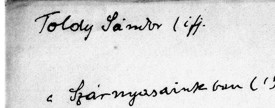 Toldy Sándor (ifj.
"Szárnyasainkban" ('